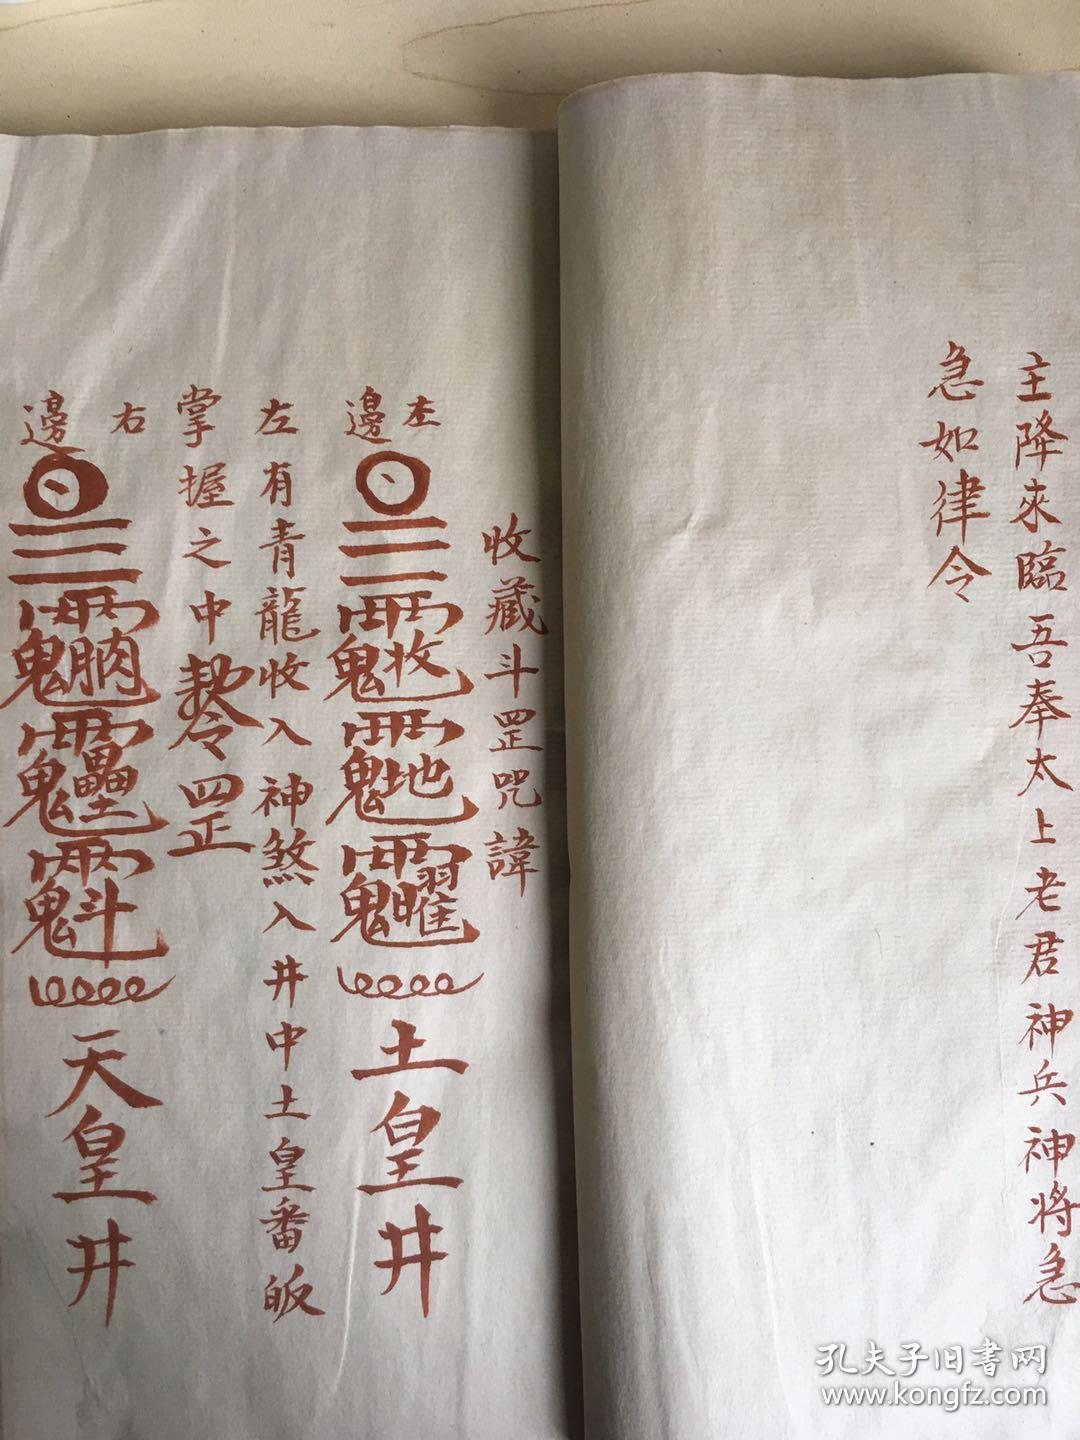 主降來臨吾奉太上老君神兵神将急
急如律令
收藏斗罡咒諱
左邊
土皇井
左有青龍收入神煞入井中土皇番皈
掌握之中
右邊
天皇井
孔夫子旧書网
www.kongfz.com